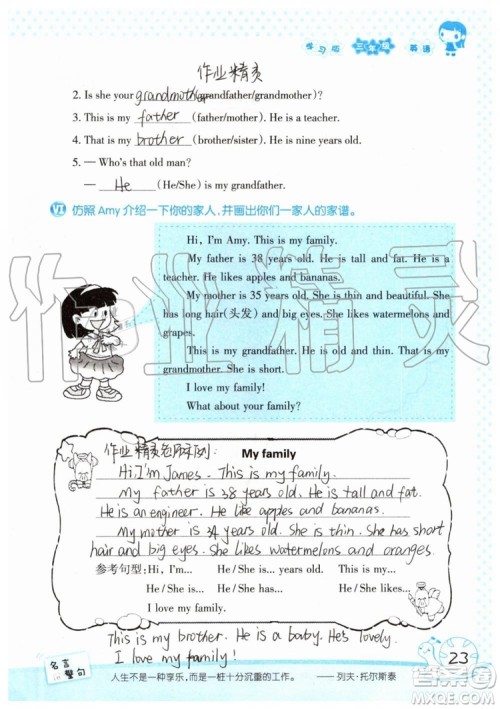 学习版 三年级 英语
作业精灵
2. Is she your grandmother (grandfather/grandmother)?
3. This is my father (father/mother). He is a teacher.
4. That is my brother (brother/sister). He is nine years old.
5. — Who's that old man?
— He (He/She) is my grandfather.
Ⅵ 仿照 Amy 介绍一下你的家人,并画出你们一家人的家谱。
Hi, I'm Amy. This is my family.
My father is 38 years old. He is tall and fat. He is a
teacher. He likes apples and bananas.
My mother is 35 years old. She is thin and beautiful. She
has long hair(头发) and big eyes. She likes watermelons and
grapes.
This is my grandfather. He is old and thin. That is my
grandmother. She is short.
I love my family!
What about your family?
My family
Hi, I'm James. This is my family.
My father is 38 years old. He is tall and fat.
He is an engineer. He like apples and bananas.
My mother is 34 years old. She is thin. She has short
hair and big eyes. She likes watermelons and oranges.
参考句型: Hi, I'm… He/She is… years old. This is my…
He/She is… He/She has… He/She likes…
I love my family!
This is my brother. He is a baby. He's lovely.
I love my family!
名言警句
人生不是一种享乐,而是一桩十分沉重的工作。 ——列夫·托尔斯泰
23
作业精灵
答案圈